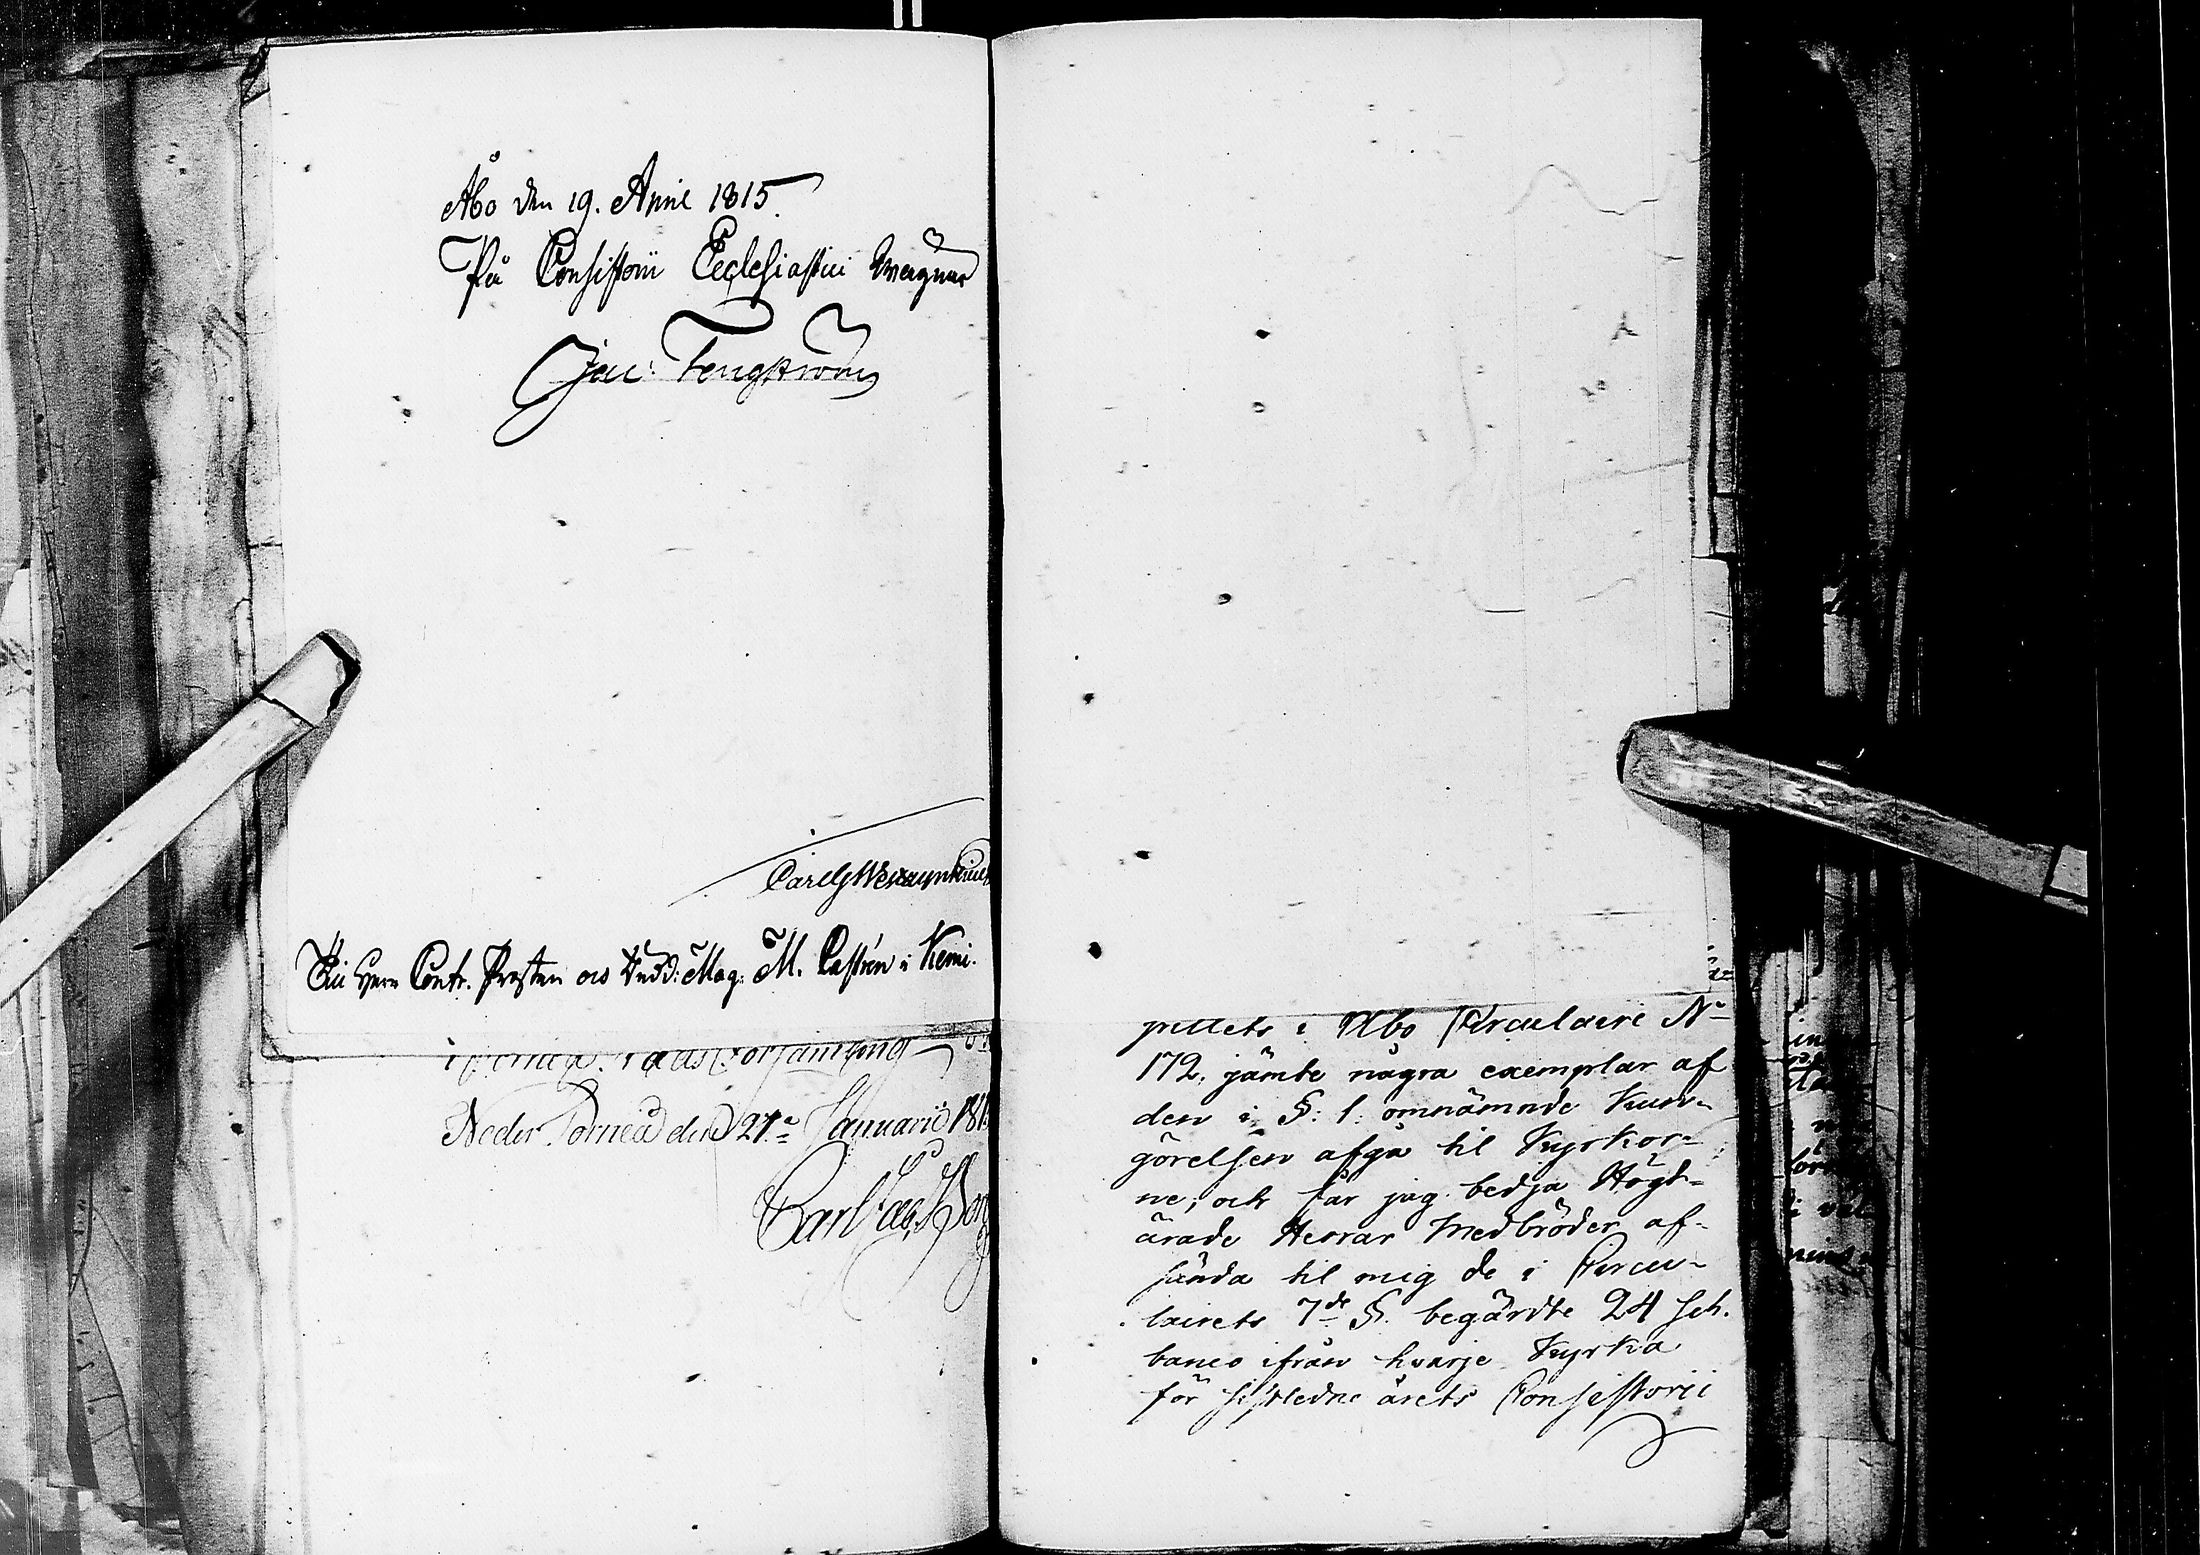 Åbo den 19. April 1815.
På Consistorii Ecclesiastici wägnar
Jac: Tengström
Til Herr Contr. Prosten och Vedd: Mag: M. Castrén i Kemi.
Neder Torneå den 27de Januarii 181
pittlets i Åbo Circulaire No
172, jämte några exemplar af
den i §: 1: omnämnde Kun-
görelsen afgå til Kyrkor-
ne, och får jag bedja Högt-
ärade Herrar Medbröder af-
sända til mig de i Circu-
lairets 7de §. begärdte 24 sch.
banco ifrån hvarje Kyrka
för sistledne årets Consistorii